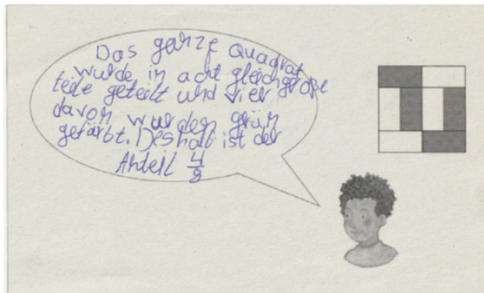 Das ganze Quadrat
wurde in acht gleichgroße
teile geteilt und vier
davon wurden grün
gefärbt. Deshalb ist der
Anteil 4/8